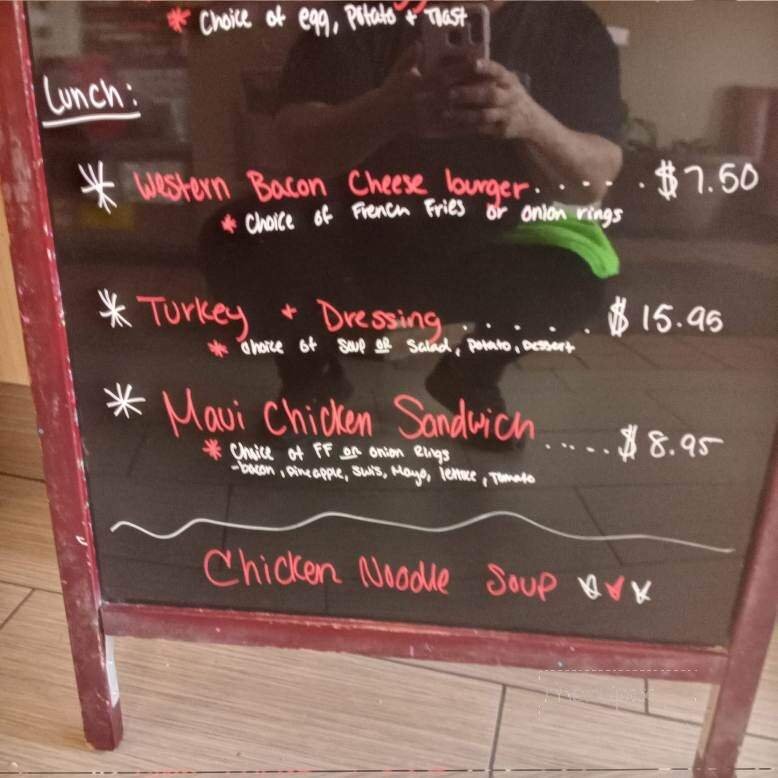 * Choice of egg, Potato + Toast
Lunch:
* Western Bacon Cheese burger. . . . . . $7.50
* Choice of French Fries or onion rings
* Turkey + Dressing . . . . . . $15.95
* choice of soup or salad, potato, Dessert
* Maui Chicken Sandwich ..... $8.95
* Choice of FF or onion Rings
-bacon, pineapple, swis, Mayo, lettice, Tomato
Chicken Noodle Soup